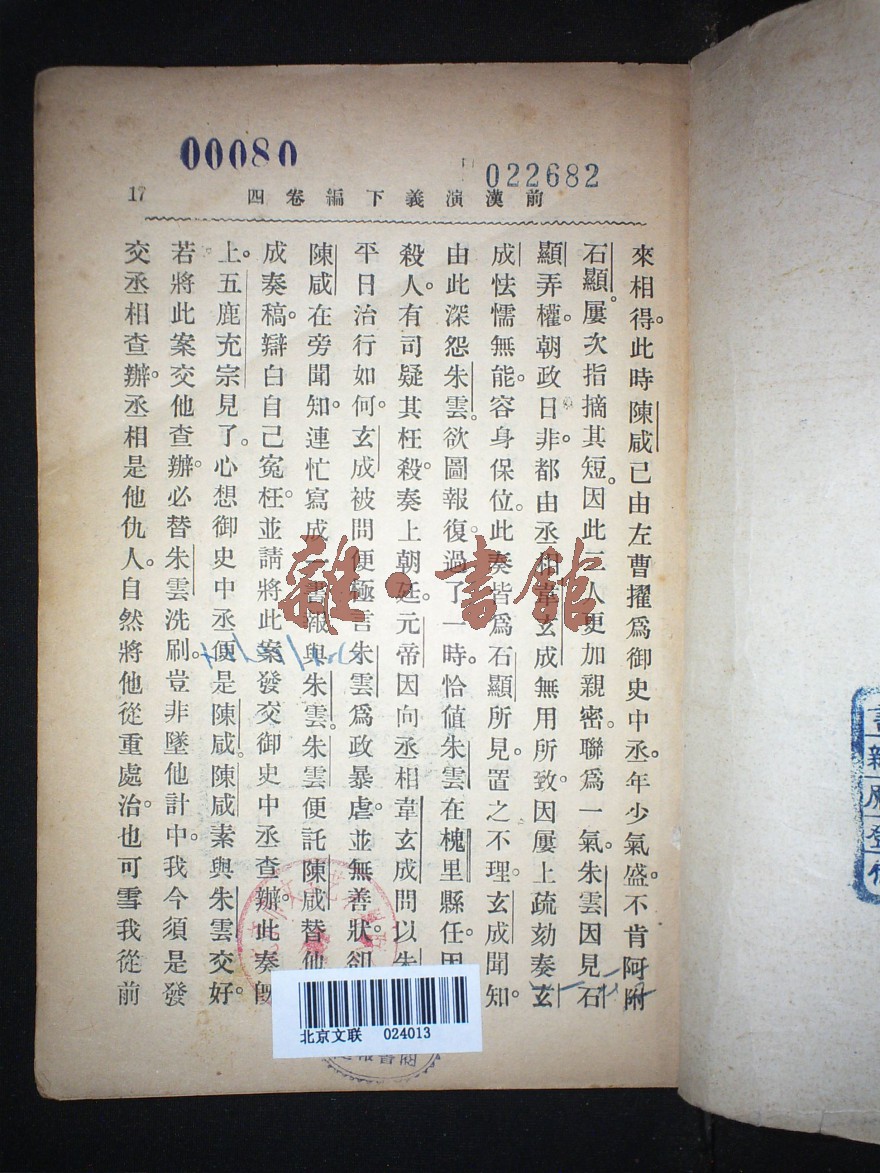 00080
022682
前漢演義下編卷四
17
來相得。此時陳咸已由左曹擢爲御史中丞。年少氣盛。不肯阿附
石顯。屢次指摘其短。因此三人更加親密。聯爲一氣。朱雲因見石
顯弄權。朝政日非。都由丞相韋玄成無用所致。因屢上疏劾奏玄
成怯懦無能。容身保位。此奏皆爲石顯所見。置之不理。玄成聞知。
由此深怨朱雲。欲圖報復。過了一時。恰值朱雲在槐里縣任。因
殺人。有司疑其枉殺。奏上朝廷。元帝因向丞相韋玄成問以朱
平日治行如何。玄成被問。便極言朱雲爲政暴虐。並無善狀。卻
陳咸在旁聞知。連忙寫成一書。報與朱雲。朱雲便託陳咸替他
成奏稿。辯白自己冤枉。並請將此案發交御史中丞查辦。此奏既
上。五鹿充宗見了。心想御史中丞便是陳咸。陳咸素與朱雲交好。
若將此案交他查辦。必替朱雲洗刷。豈非墜他計中。我今須是發
交丞相查辦。丞相是他仇人。自然將他從重處治。也可雪我從前
雜·書館
北京文联 024013